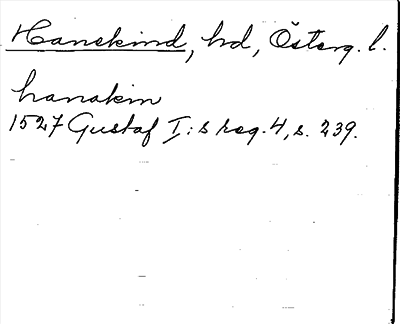 Hanekind, hd, Österg. l.
hanakin
1527 Gustaf I:s reg. 4, s. 239.